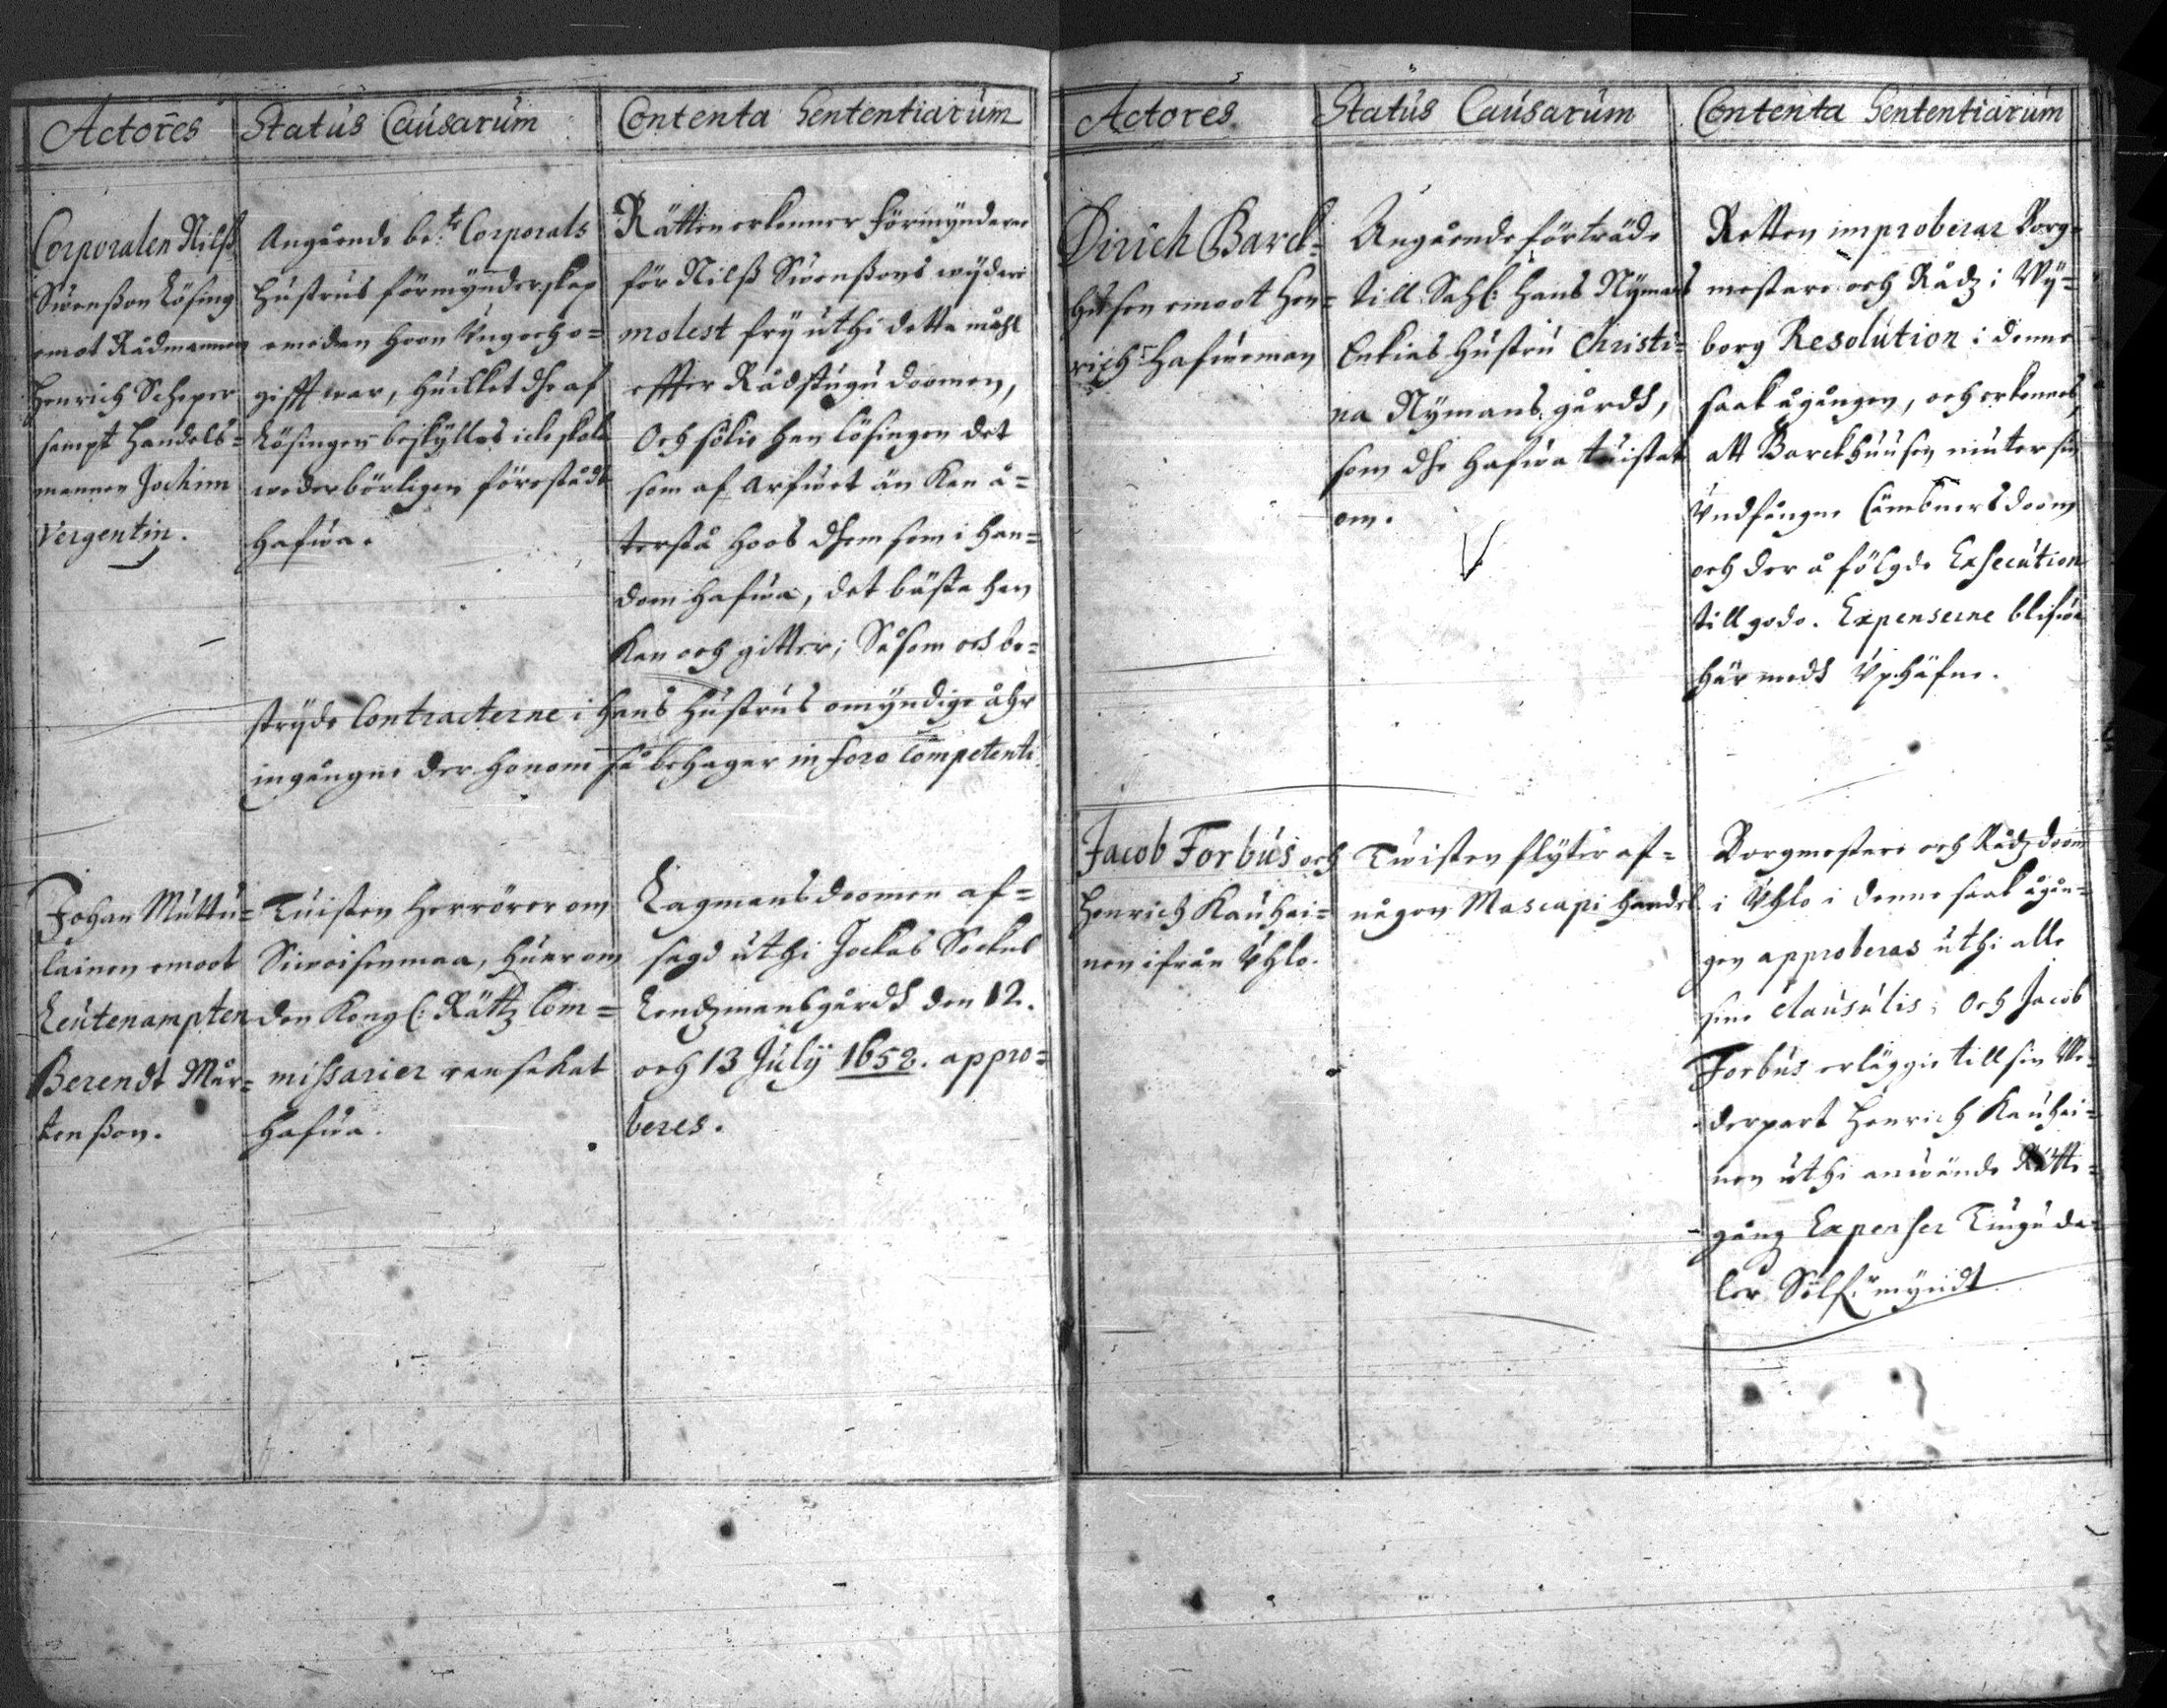 Actores
Status Causarum
Contenta Sententiarum
Corporalen Nilß
Swenßon Lösing
emot Rådmannen
Henrich Scheper
sampt Handels=
mannen Jochim
Vergentin.
Angående be:te Corporals
Hustrus förmynderskap
emedan hoon Ung och o=
gifft war, huilket dhe af
Lösingen beskylles icke skola
wederbörligen förestådt
hafwa.
Rätten erkenner förmyndarne
för Nilß Swenßons wijdare
molest frij uthi detta måhl
effter Rådstugu doomen,
Och sökie han Lösingen det
som af Arfwet än kan å=
terstå hoos dhem som i han=
dom hafwa, det bästa han
kan och gitter; Såsom och be=
strijde Contracterne i hans hustrus omyndige åhr
ingångne der honom så behagar in foro Competenti.
Johan Muttu=
lainen emoot
Leutenampten
Berendt Mår=
tenßon.
Tuisten herrörer om
Siwoisenmaa, huarom
den Kongl: Rättz Com=
missarier ransakat
hafwa.
Lagmansdoomen af=
sagd uthi Jockas Sockns
Lendzmansgårdh den 12.
och 13 Julij 1658. appro=
beres.
Actores
Status Causarum
Contenta Sententiarum
Dirich Barck=
husen emoot Hen=
rich Hafueman
Angående förträde
till Sahl: Hans Nymans
Enkias hustru Christi=
na Nymans gårdh,
som dhe hafwa tuistat
om.
Retten improberar Borge=
mestare och Rådz i Wij=
borg Resolution i denne
saak ågången, och erkennes,
att Barckhuusen niuter sin
Undfångne Cämbnersdoom
och der å fölgde Exsecution
till godo. Expenserne blifwa
här medh Uphäfne.
Jacob Forbus och
Henrich Kauhai=
nen ifrån Uhlo.
Twisten flyter af=
någon Mascapi handel
Borgmestare och Rådz doom
i Uhlo i denne saak ågån=
gen approberas uthi alle
sine clausulis, Och Jacob
Forbus erläggie till sin We=
derpart Henrich Kauhai=
nen uthi anwände Rätte=
gång Expenser Tiugu da=
ler Sölf:r myndt